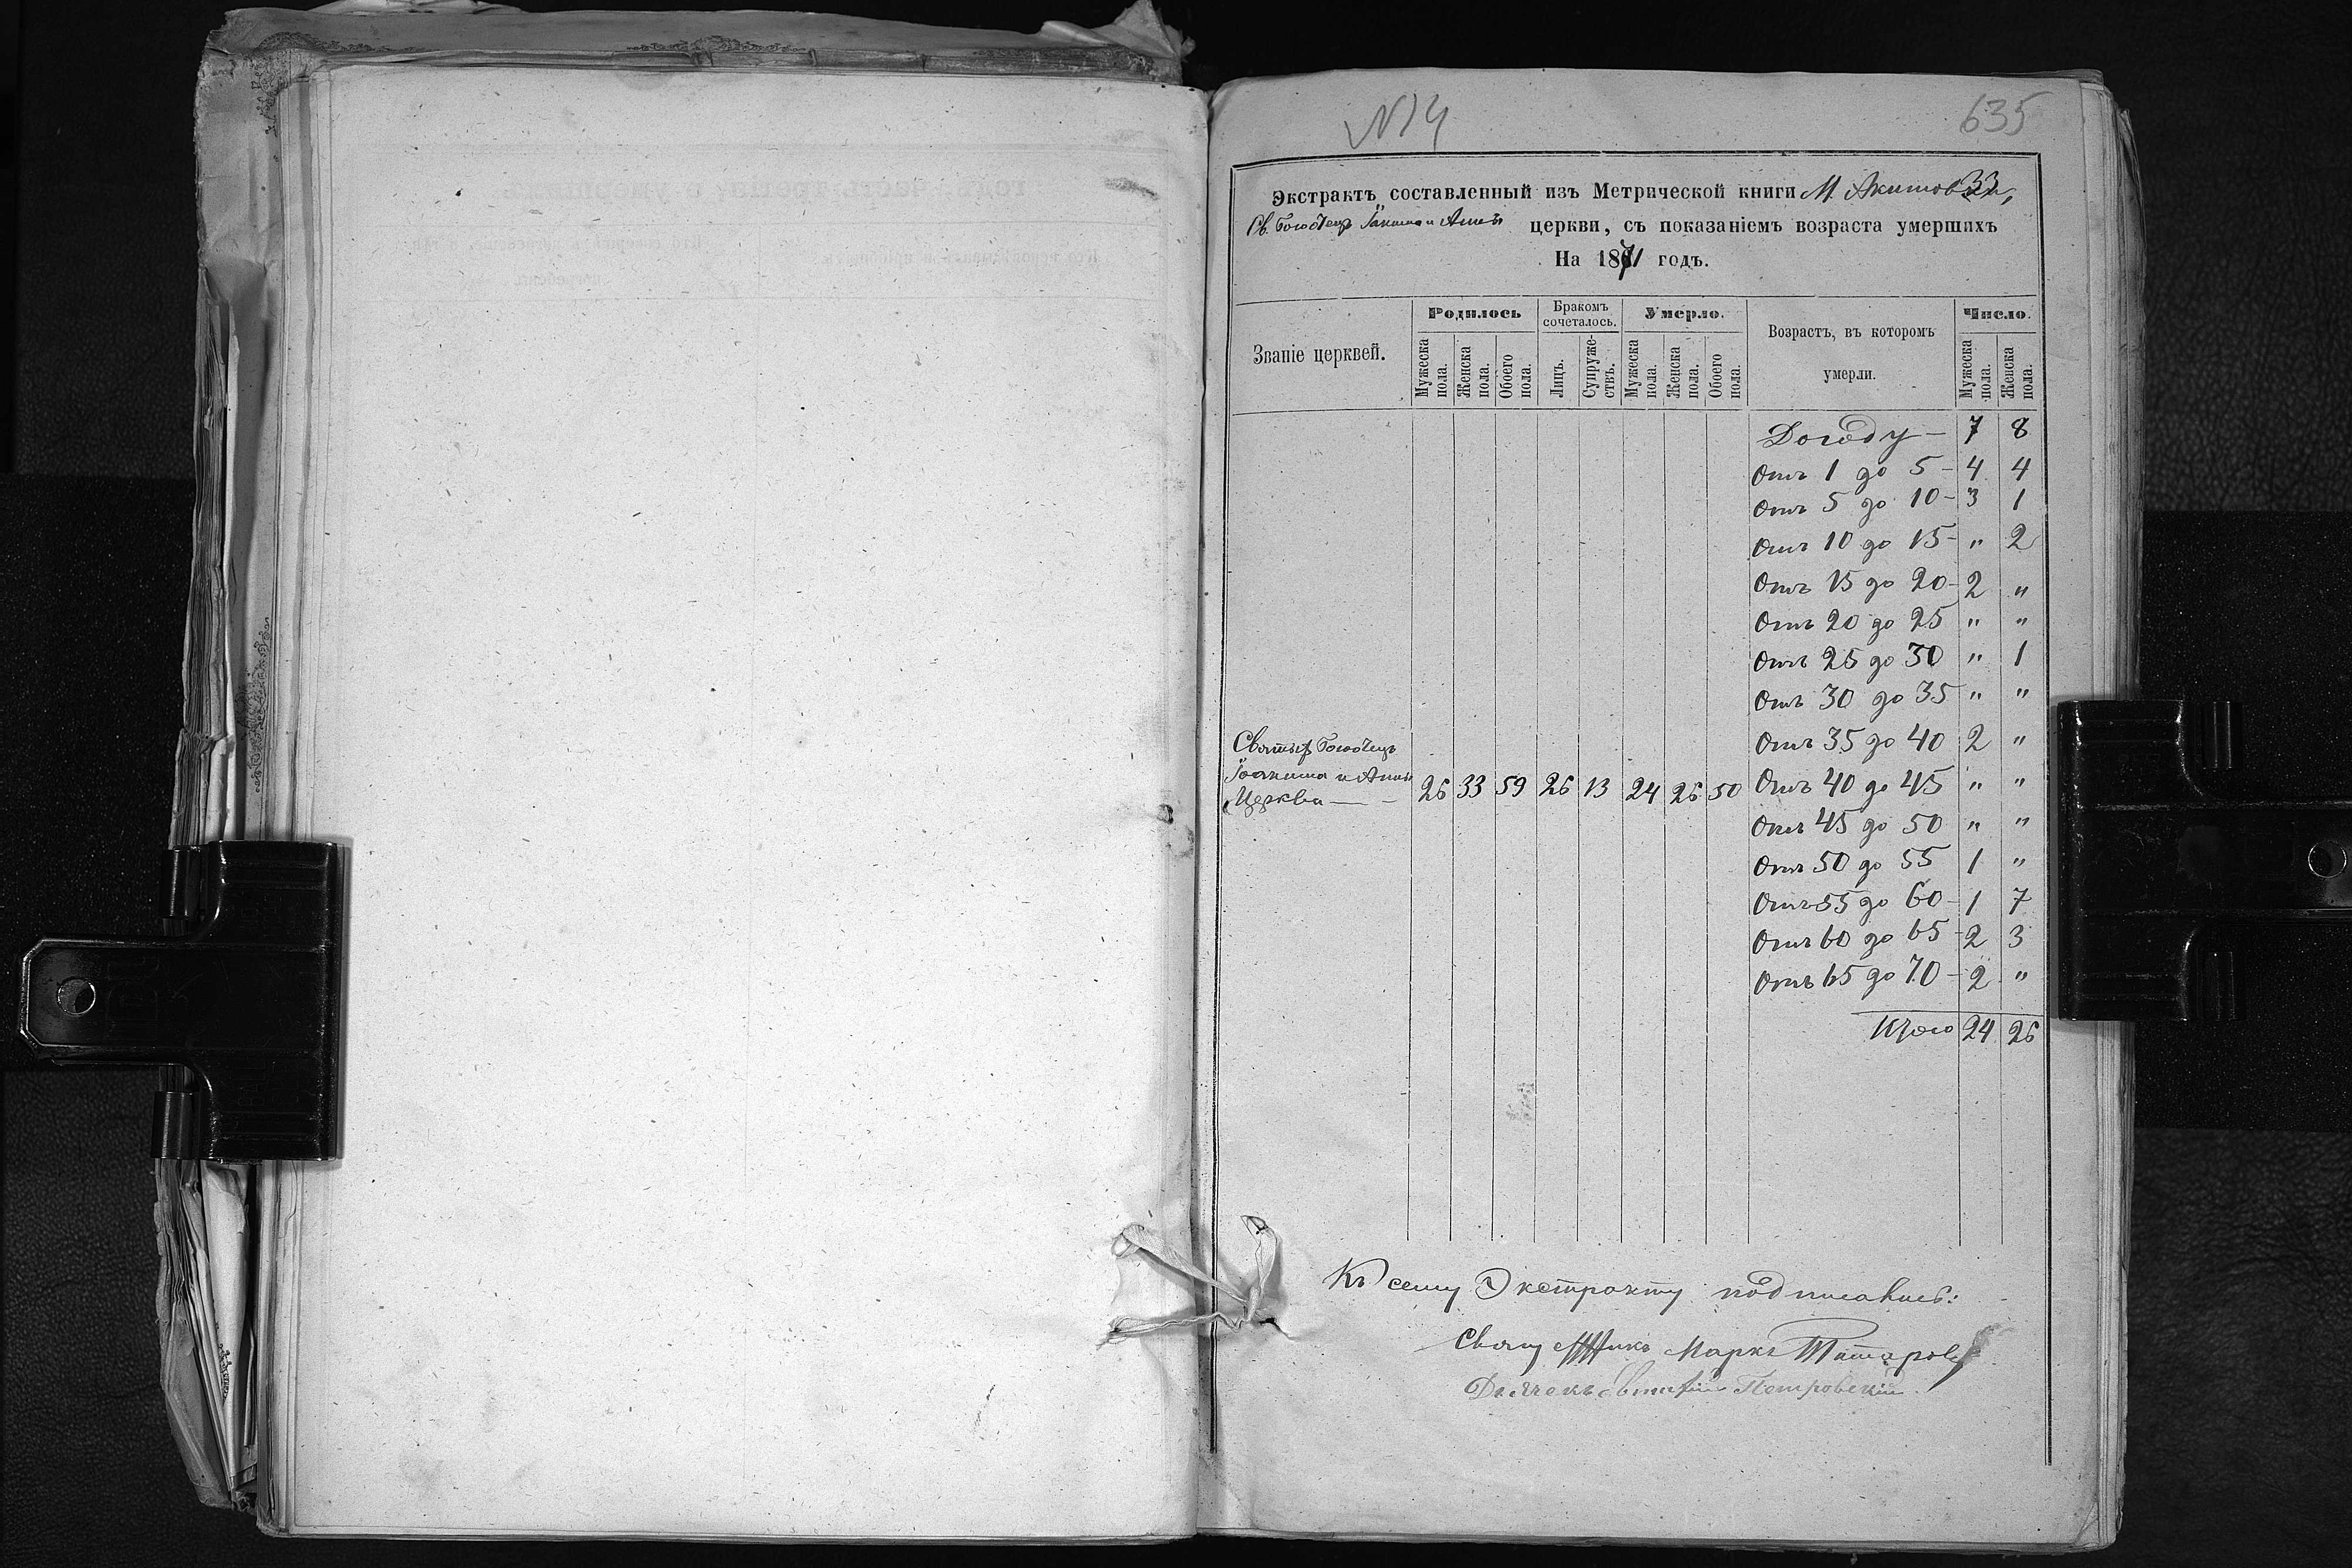 № 14
635
33
Экстрактъ составленный изъ Метрической книги М. Акимовки,
Св. Богоотецъ Іоакима и Анны церкви, съ показаніемъ возраста умершихъ
На 1871 годъ.
Званіе церквей. Родилось Бракомъ сочеталось. Умерло. Возрастъ, въ которомъ умерли. Число.
Мужеска пола. Женска пола. Обоего пола. Лицъ. Супружествъ. Мужеска пола. Женска пола. Обоего пола. Мужеска пола. Женска пола.
До году — 7 8
Отъ 1 до 5 - 4 4
Отъ 5 до 10 - 3 1
Отъ 10 до 15 - " 2
Отъ 15 до 20 - 2 "
Отъ 20 до 25 " "
Отъ 25 до 30 " 1
Отъ 30 до 35 " "
Отъ 35 до 40 2 "
Святыхъ Богоотецъ
Іоакима и Анны
Церкви — - 26 33 59 26 13 24 26 50
Отъ 40 до 45 " "
Отъ 45 до 50 " "
Отъ 50 до 55 1 "
Отъ 55 до 60 - 1 7
Отъ 60 до 65 - 2 3
Отъ 65 до 70 - 2 "
Итого 24 26
Къ сему Экстракту подписались:
Священникъ Маркъ Татаровъ
Дьячекъ Петровскій